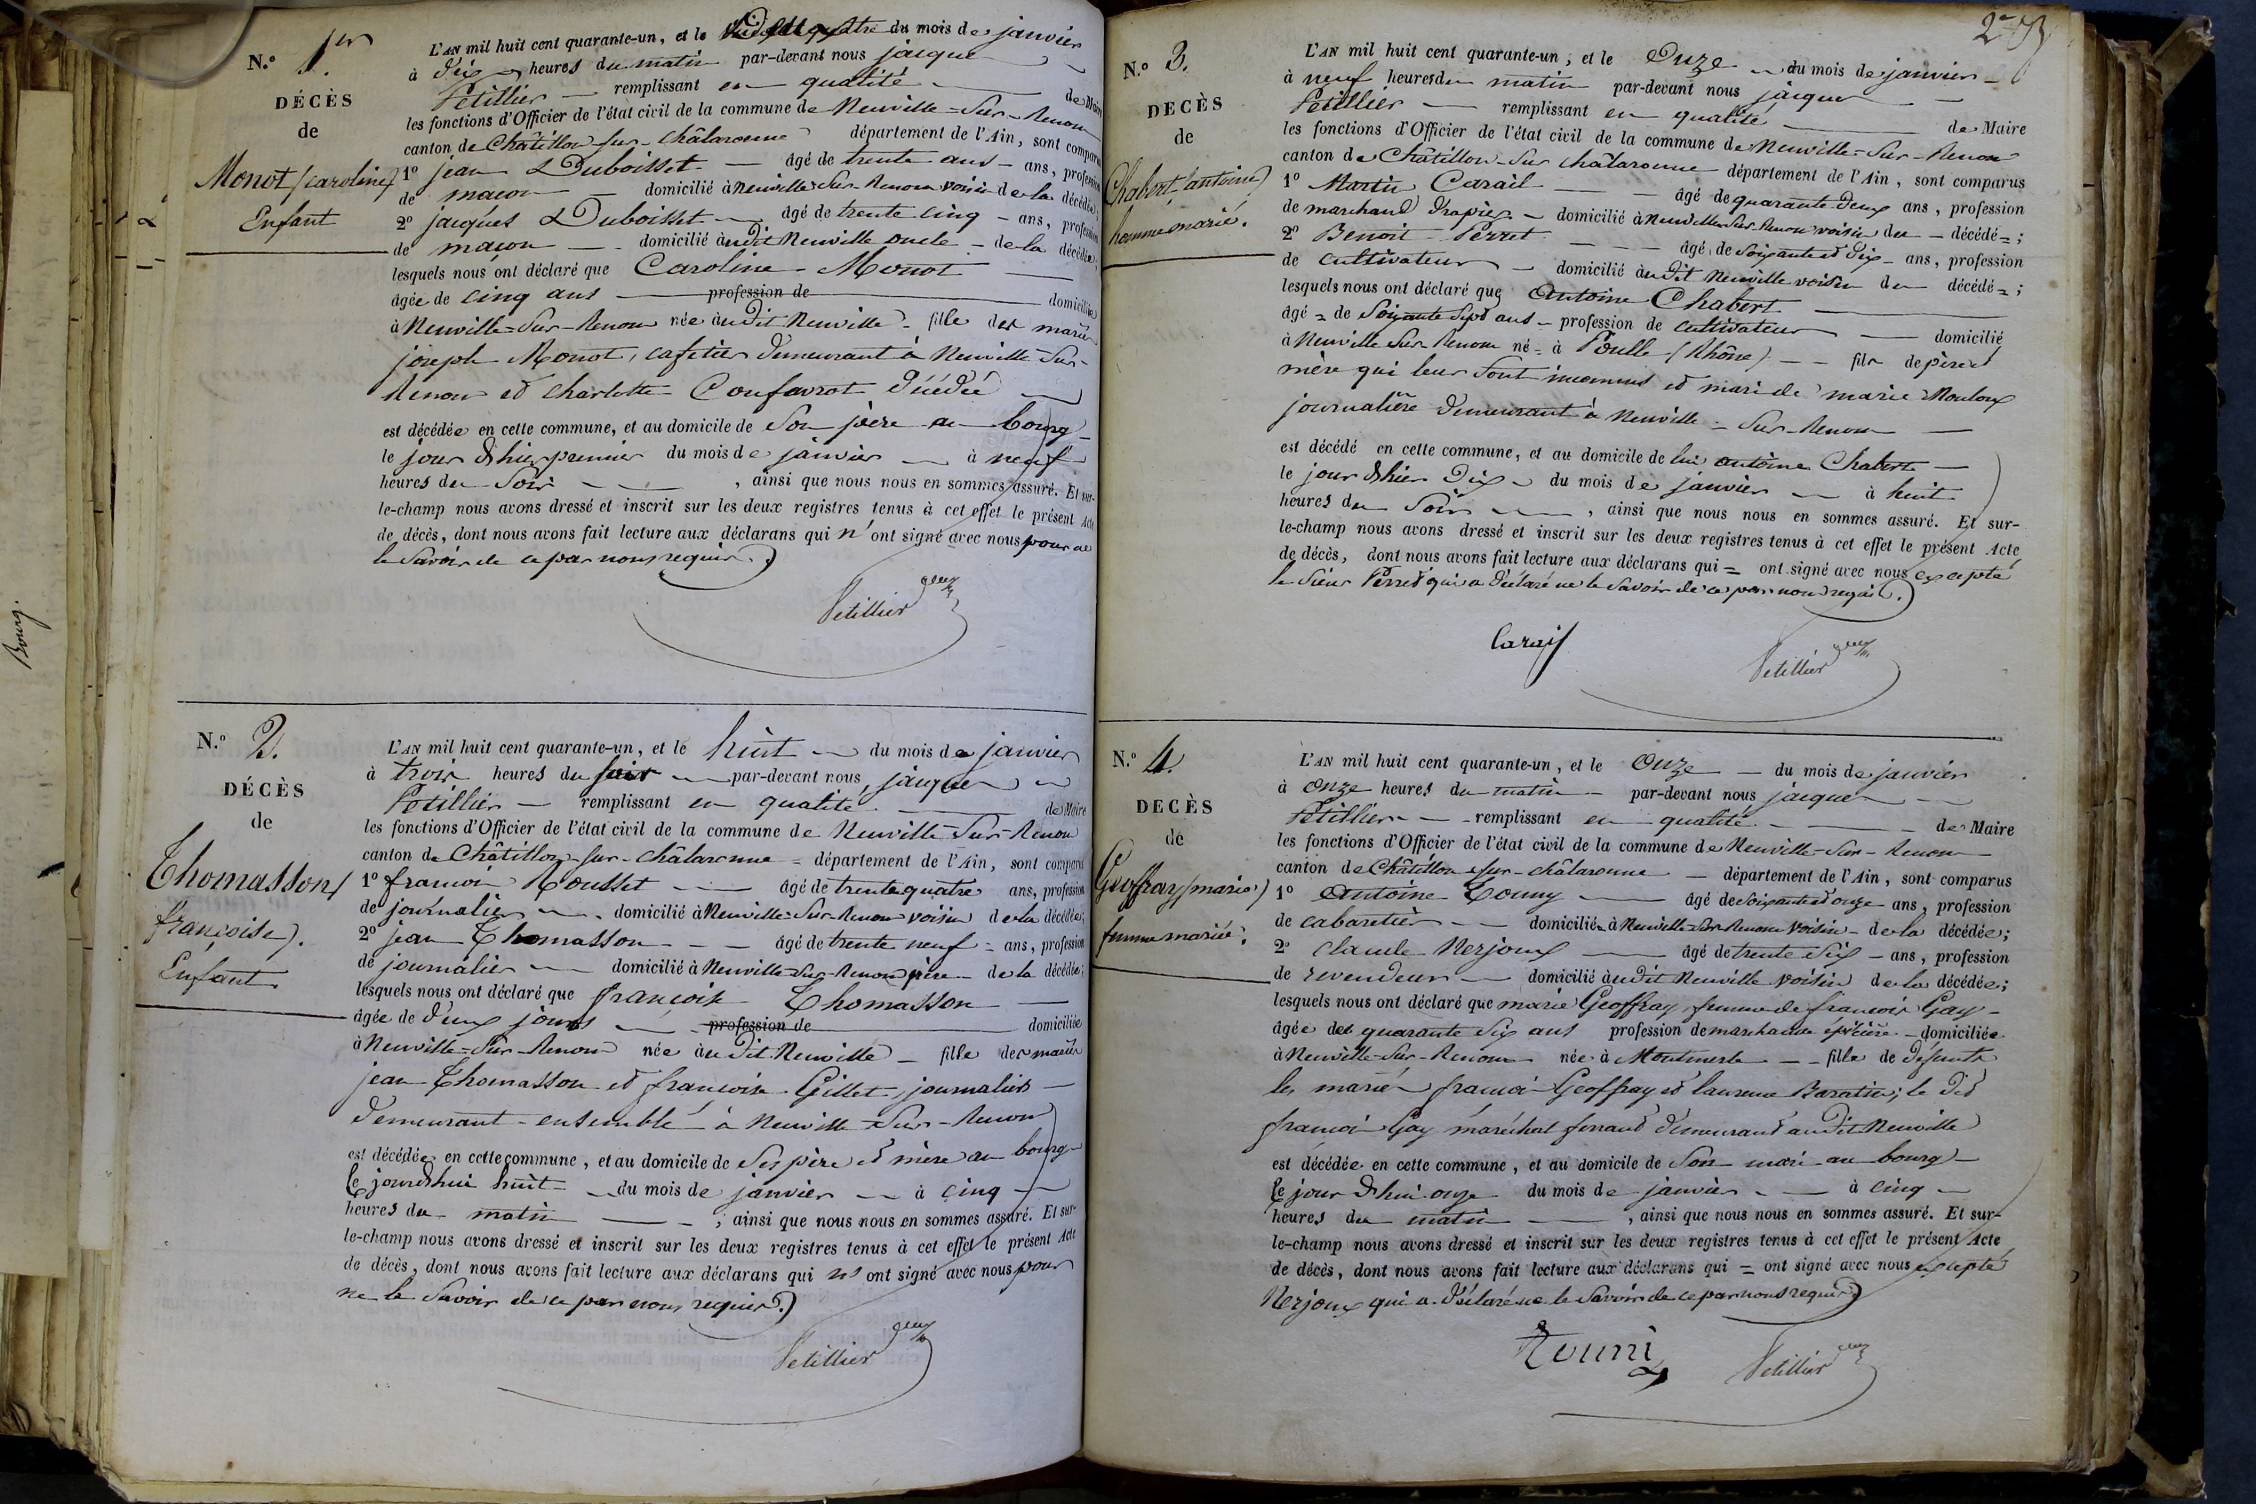 Bourg.
N.º 1.er
DÉCÈS
de
Monot (caroline)
Enfant
L'AN mil huit cent quarante-un, et le du mois de janvier
à dix heures du matin par-devant nous jacques
Petillier remplissant en qualité de Maire
les fonctions d'Officier de l'état civil de la commune de Neuville-Sur-Renom
canton de Châtillon-sur-châlaronne département de l'Ain, sont comparus
1º jean Duboisset âgé de trente ans ans, profession
de maçon domicilié à Neuville-Sur-Renom voisin de la décédée;
2º jacques Duboisset âgé de trente cinq ans, profession
de maçon domicilié audit Neuville oncle de la décédée;
lesquels nous ont déclaré que Caroline Monot
âgée de cinq ans profession de domiciliée
à Neuville-Sur-Renom née audit Neuville fille des mariés
joseph Monot, cafetier demeurant à Neuville-Sur-
Renom et charlotte Confavrot décédée
est décédée en cette commune, et au domicile de Son père au bourg
le jour d'hier premier du mois de janvier à neuf
heures du Soir, ainsi que nous nous en sommes assuré. Et sur-
le-champ nous avons dressé et inscrit sur les deux registres tenus à cet effet le présent Acte
de décès, dont nous avons fait lecture aux déclarans qui n'ont signé avec nous pour ne
le Savoir de ce par nous requis.
Petillier
N.º 2.
DÉCÈS
de
Thomasson (
françoise).
Enfant
L'AN mil huit cent quarante-un, et le huit du mois de janvier
à trois heures du soir par-devant nous jacques
Petillier remplissant en qualité de Maire
les fonctions d'Officier de l'état civil de la commune de Neuville-Sur-Renom
canton de Châtillon-sur-châlaronne département de l'Ain, sont comparus
1º françois Rousset âgé de trente quatre ans, profession
de journalier domicilié à Neuville-Sur-Renom voisin de la décédée;
2º jean Thomasson âgé de trente neuf ans, profession
de journalier domicilié à Neuville-Sur-Renom père de la décédée;
lesquels nous ont déclaré que françoise Thomasson
âgée de deux jours profession de domiciliée
à Neuville-Sur-Renom née audit Neuville fille des mariés
jean Thomasson et françoise Gillet, journaliers
demeurant ensemble à Neuville-Sur-Renom
est décédée en cette commune, et au domicile de Ses père et mère au bourg
le jourd'hui huit du mois de janvier à cinq
heures du matin; ainsi que nous nous en sommes assuré. Et sur-
le-champ nous avons dressé et inscrit sur les deux registres tenus à cet effet le présent Acte
de décès, dont nous avons fait lecture aux déclarans qui n'ont signé avec nous pour
ne le Savoir de ce par nous requis.
Petillier
N.º 3.
DÉCÈS
de
Chabert (antoine)
homme marié.
L'AN mil huit cent quarante-un, et le Onze du mois de janvier
à neuf heures du matin par-devant nous jacques
Petillier remplissant en qualité de Maire
les fonctions d'Officier de l'état civil de la commune de Neuville-Sur-Renom
canton de Châtillon-Sur châlaronne département de l'Ain, sont comparus
1º Martin Carail âgé de quarante-deux ans, profession
de marchand drapier domicilié à Neuville-Sur-Renom voisin du décédé;
2º Benoit Perret âgé de Soixante et dix ans, profession
de cultivateur domicilié audit Neuville voisin du décédé;
lesquels nous ont déclaré que Antoine Chabert
âgé de Soixante Sept ans profession de cultivateur domicilié
à Neuville Sur Renom né à Poulle (Rhône) fils de père et
mère qui leur Sont inconnus et mari de marie Mouloux
journalière demeurant à Neuville-Sur-Renom
est décédé en cette commune, et au domicile de lui antoine Chabert
le jour d'hier Dix du mois de janvier à huit
heures du Soir, ainsi que nous nous en sommes assuré. Et sur-
le-champ nous avons dressé et inscrit sur les deux registres tenus à cet effet le présent Acte
de décès, dont nous avons fait lecture aux déclarans qui = ont signé avec nous excepté
le Sieur Perret qui a déclaré ne le Savoir de ce par nous requis.
Petillier
N.º 4.
DECÈS
de
Geoffray (marie)
femme mariée.
L'AN mil huit cent quarante-un, et le Onze du mois de janvier
à Onze heures du matin par-devant nous jacques
Petillier remplissant en qualité de Maire
les fonctions d'Officier de l'état civil de la commune de Neuville-Sur-Renom
canton de Châtillon-sur-châlaronne département de l'Ain, sont comparus
1º Antoine Tourny âgé de Soixante et onze ans, profession
de cabaretier domicilié à Neuville-Sur-Renom voisin de la décédée;
2º claude Nerjoux âgé de trente Six ans, profession
de revendeur domicilié audit Neuville voisin de la décédée;
lesquels nous ont déclaré que marie Geoffray, femme de françois Gay
âgée de quarante Six ans profession de marchande épicière domiciliée
à Neuville-Sur-Renom née à Montmerle fille de défunts
les mariés françois Geoffray et laurence Baratin; le dit
françois Gay maréchal ferrand demeurand audit Neuville
est décédée en cette commune, et au domicile de Son mari au bourg
le jour d'hui onze du mois de janvier à cinq
heures du matin, ainsi que nous nous en sommes assuré. Et sur-
le-champ nous avons dressé et inscrit sur les deux registres tenus à cet effet le présent Acte
de décès, dont nous avons fait lecture aux déclarans qui = ont signé avec nous excepté
Nerjoux qui a déclaré ne le Savoir de ce par nous requis.
Petillier